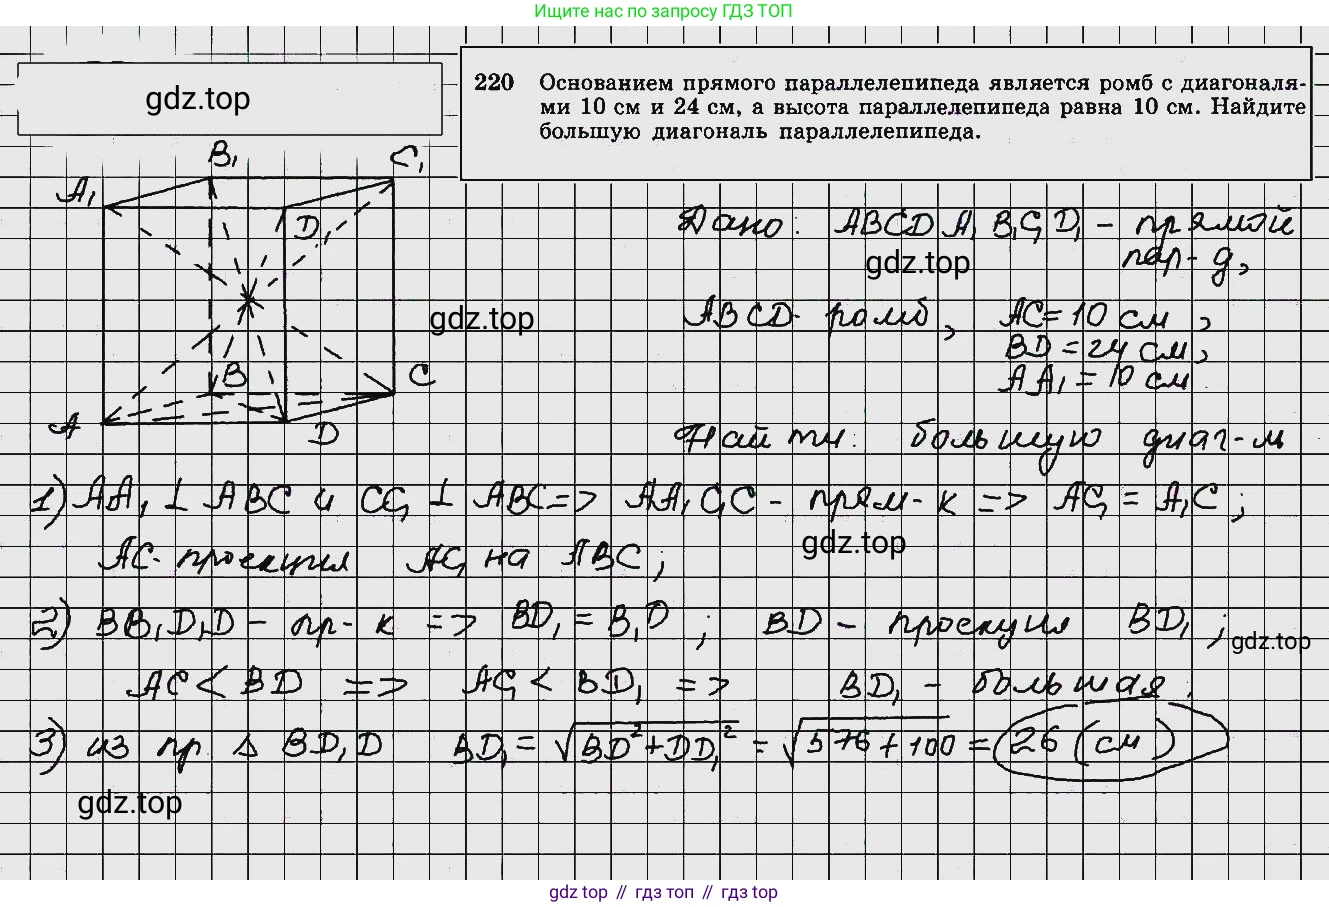 Ищите нас по запросу ГДЗ ТОП
gdz.top
220 Основанием прямого параллелепипеда является ромб с диагоналя-
ми 10 см и 24 см, а высота параллелепипеда равна 10 см. Найдите
большую диагональ параллелепипеда.
B₁
C₁
A₁
D₁
B
C
A
D
gdz.top
Дано: ABCDA₁B₁C₁D₁ - прямой
пар-д,
gdz.top
ABCD - ромб, AC = 10 см,
BD = 24 см,
AA₁ = 10 см.
Найти: большую диаг-ль
1) AA₁ ⊥ ABC и CC₁ ⊥ ABC => AA₁C₁C - прям-к => AC₁ = A₁C;
gdz.top
AC - проекция AC₁ на ABC;
2) BB₁D₁D - пр-к => BD₁ = B₁D; BD - проекция BD₁;
gdz.top
AC < BD => AC₁ < BD₁ => BD₁ - большая.
3) из пр. Δ BD₁D BD₁ = √BD² + DD₁² = √576 + 100 = 26 (см)
gdz.top
gdz top // гдз топ // gdz top